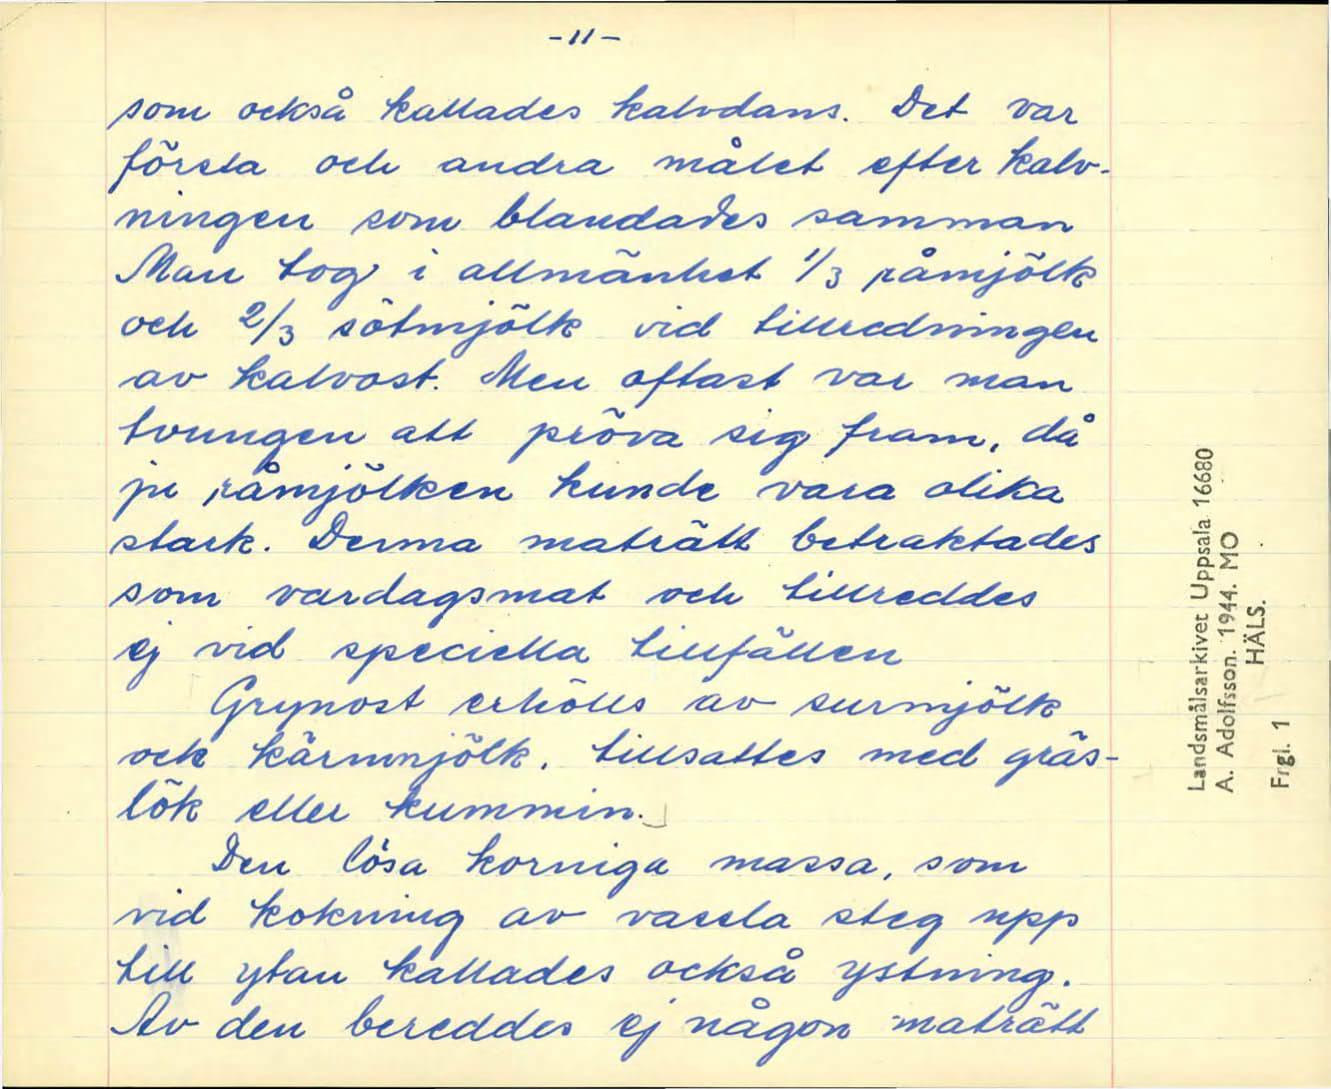 -11-
som också kallades kalvdans. Det var
första och andra målet efter kalv-
ningen som blandades samman
Man tog i allmänhet 1/3 råmjölk
och 2/3 sötmjölk vid tillredningen
av kalvost. Men oftast var man
tvungen att pröva sig fram, då
ju råmjölken kunde vara olika
stark. Denna maträtt betraktades
som vardagsmat och tillreddes
ej vid speciella tillfällen
Grynost erhölls av surmjölk
och kärnmjölk, tillsattes med gräs-
lök eller kummin.
Den lösa korniga massa, som
vid kokning av vassla steg upp
till ytan kallades också ystning.
Av den bereddes ej någon maträtt
Landsmålsarkivet Uppsala 16680
A. Adolfsson. 1944. MO
HÄLS.
Frgl. 1